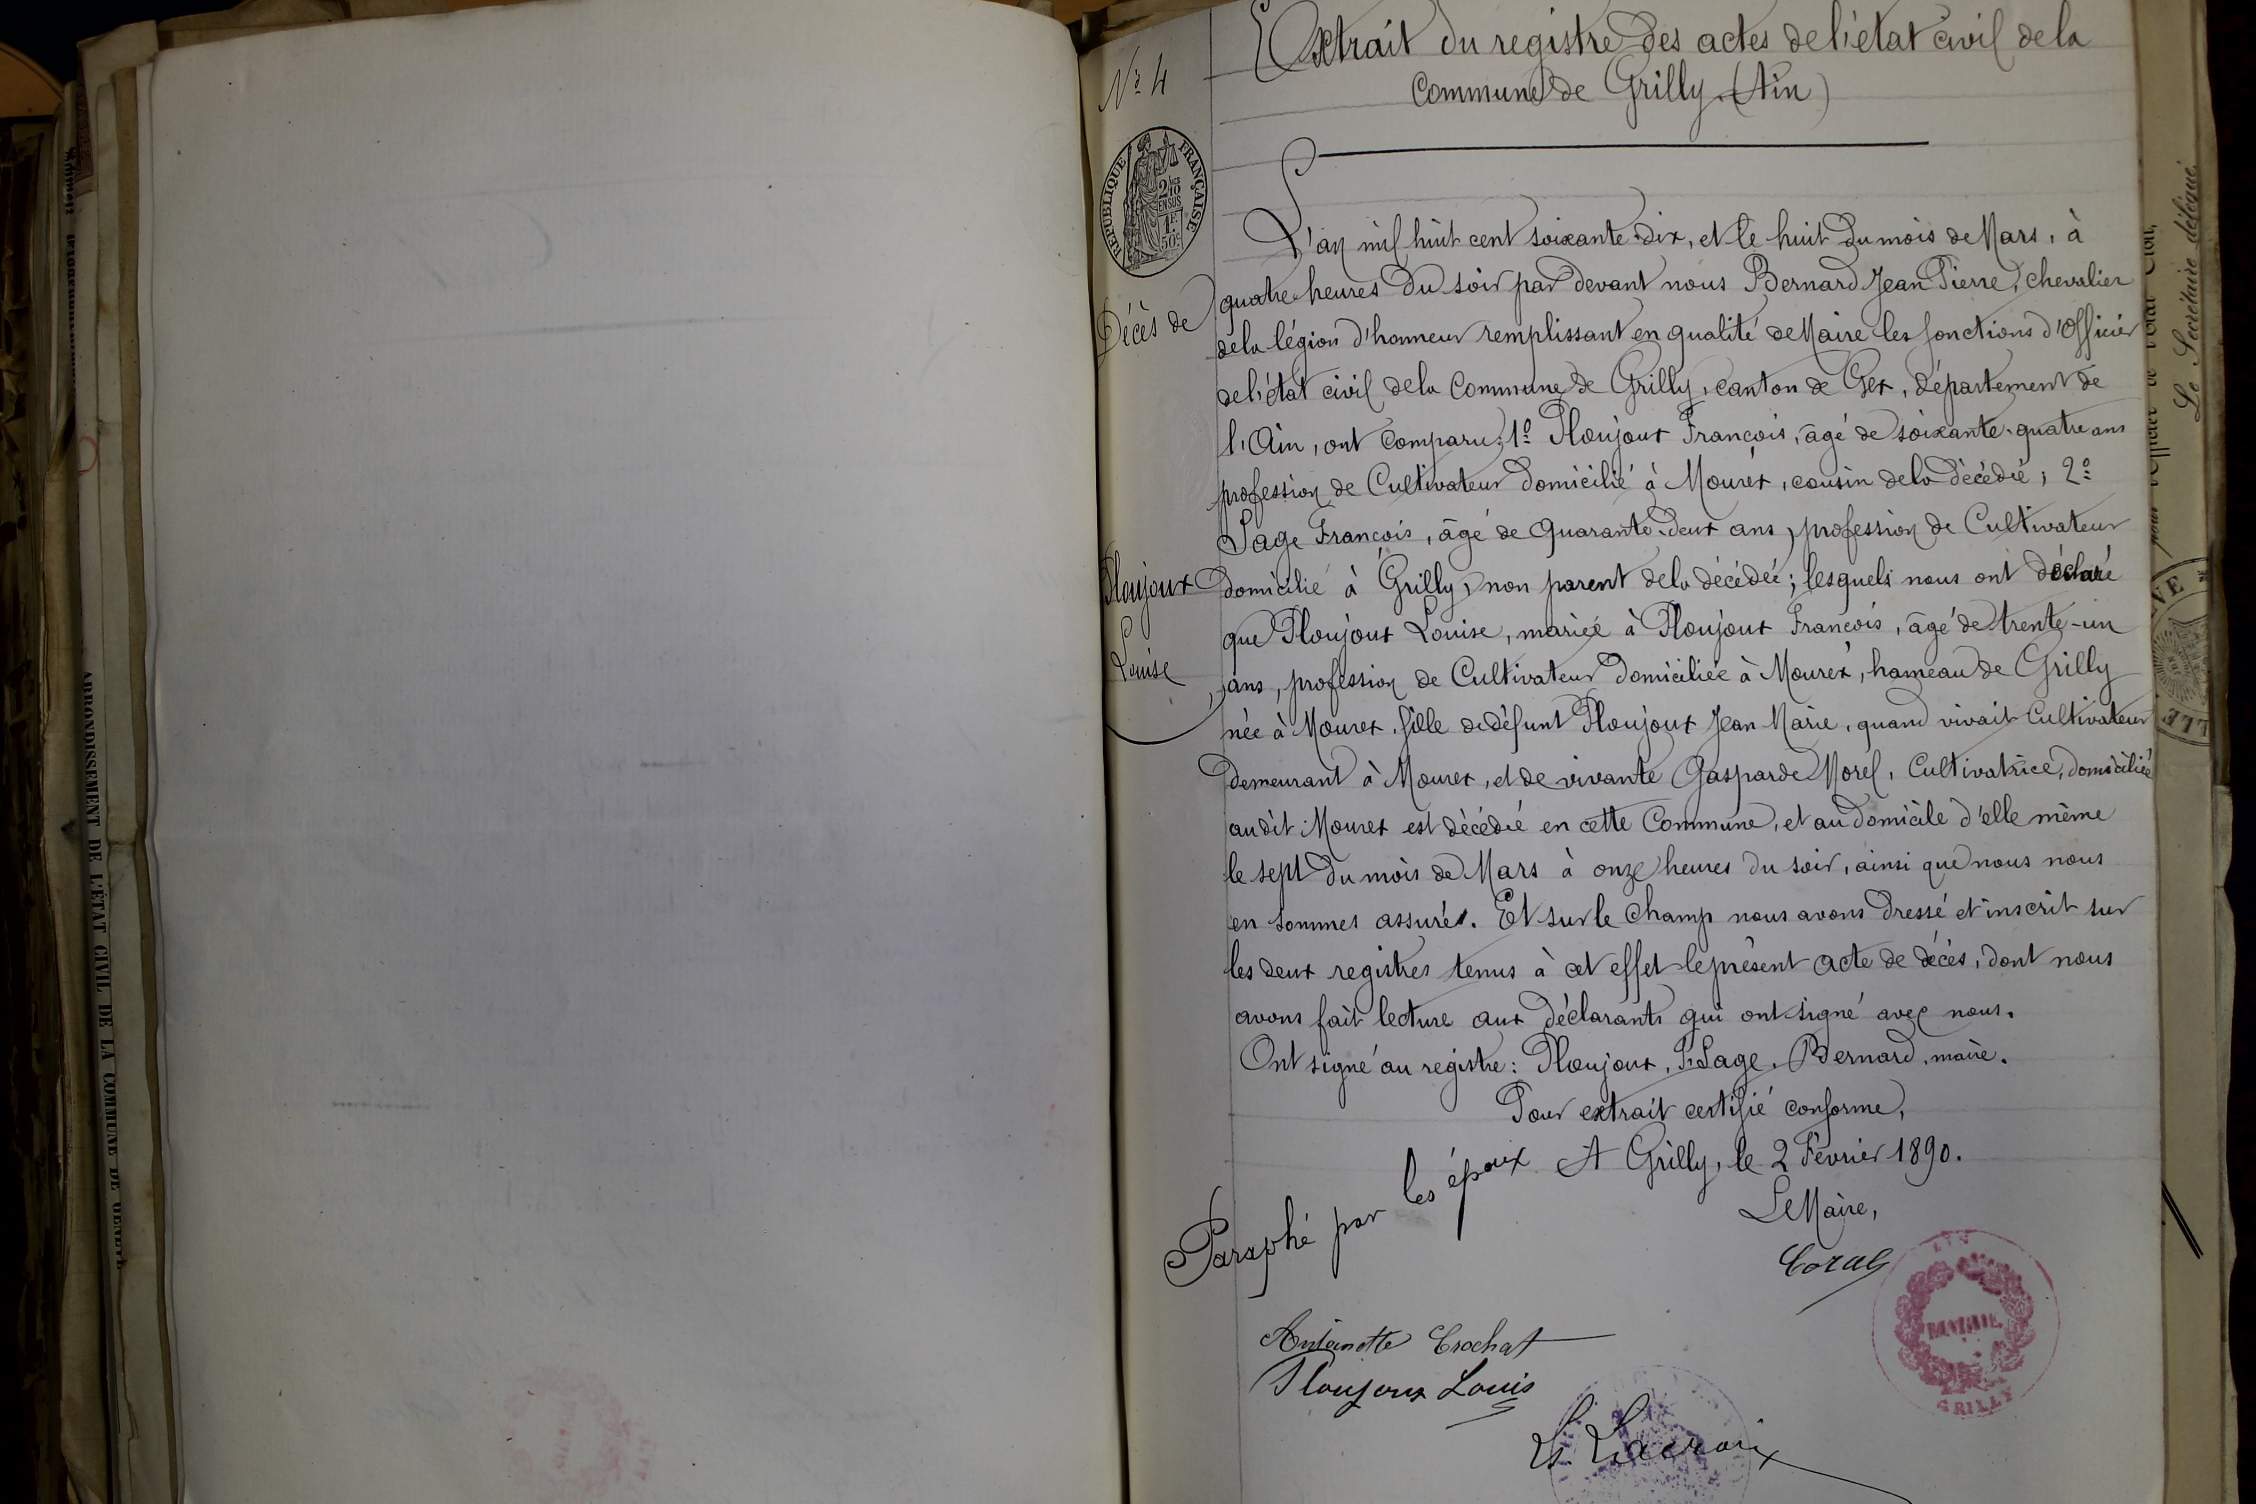 Extrait du registre des actes de l'état civil de la
Commune de Grilly (Ain)
Nº 4
RÉPUBLIQUE FRANÇAISE
2/10
EN SUS
1F.
50c
Décès de
Ploujoux
Louise
L'an mil huit cent soixante-dix, et le huit du mois de Mars, à
quatre heures du soir par devant nous Bernard Jean Pierre, chevalier
de la légion d'honneur remplissant en qualité de Maire les fonctions d'Officier
de l'état civil de la Commune de Grilly, canton de Gex, département de
l'Ain, ont comparu; 1º Ploujoux François, âgé de soixante-quatre ans
profession de Cultivateur domicilié à Mourex, cousin de la décédée; 2º
Sage François, âgé de quarante-deux ans, profession de Cultivateur
domicilié à Grilly, non parent de la décédée; lesquels nous ont déclaré
que Ploujoux Louise, mariée à Ploujoux François, âgé de trente-un
ans, profession de Cultivateur domiciliée à Mourex, hameau de Grilly
née à Mourex, fille de défunt Ploujoux Jean Marie, quand vivait Cultivateur
demeurant à Mourex, et de vivante Gasparde Morel, Cultivatrice, domiciliée
au dit Mourex est décédée en cette Commune, et au domicile d'elle même
le sept du mois de Mars à onze heures du soir, ainsi que nous nous
en sommes assurés. Et sur le champ nous avons dressé et inscrit sur
les deux registres tenus à cet effet le présent acte de décès, dont nous
avons fait lecture aux déclarants qui ont signé avec nous.
Ont signé au registre: Ploujoux, F. Sage, Bernard, maire.
Pour extrait certifié conforme,
A Grilly, le 2 Février 1890.
Le Maire,
Paraphé par les époux
Antoinette Crochat
Ploujoux Louis
Lacroix
AIN
MAIRIE
GRILLY
Le Secrétaire délégué
ARRONDISSEMENT DE L'ÉTAT CIVIL DE LA COMMUNE DE GENÈVE